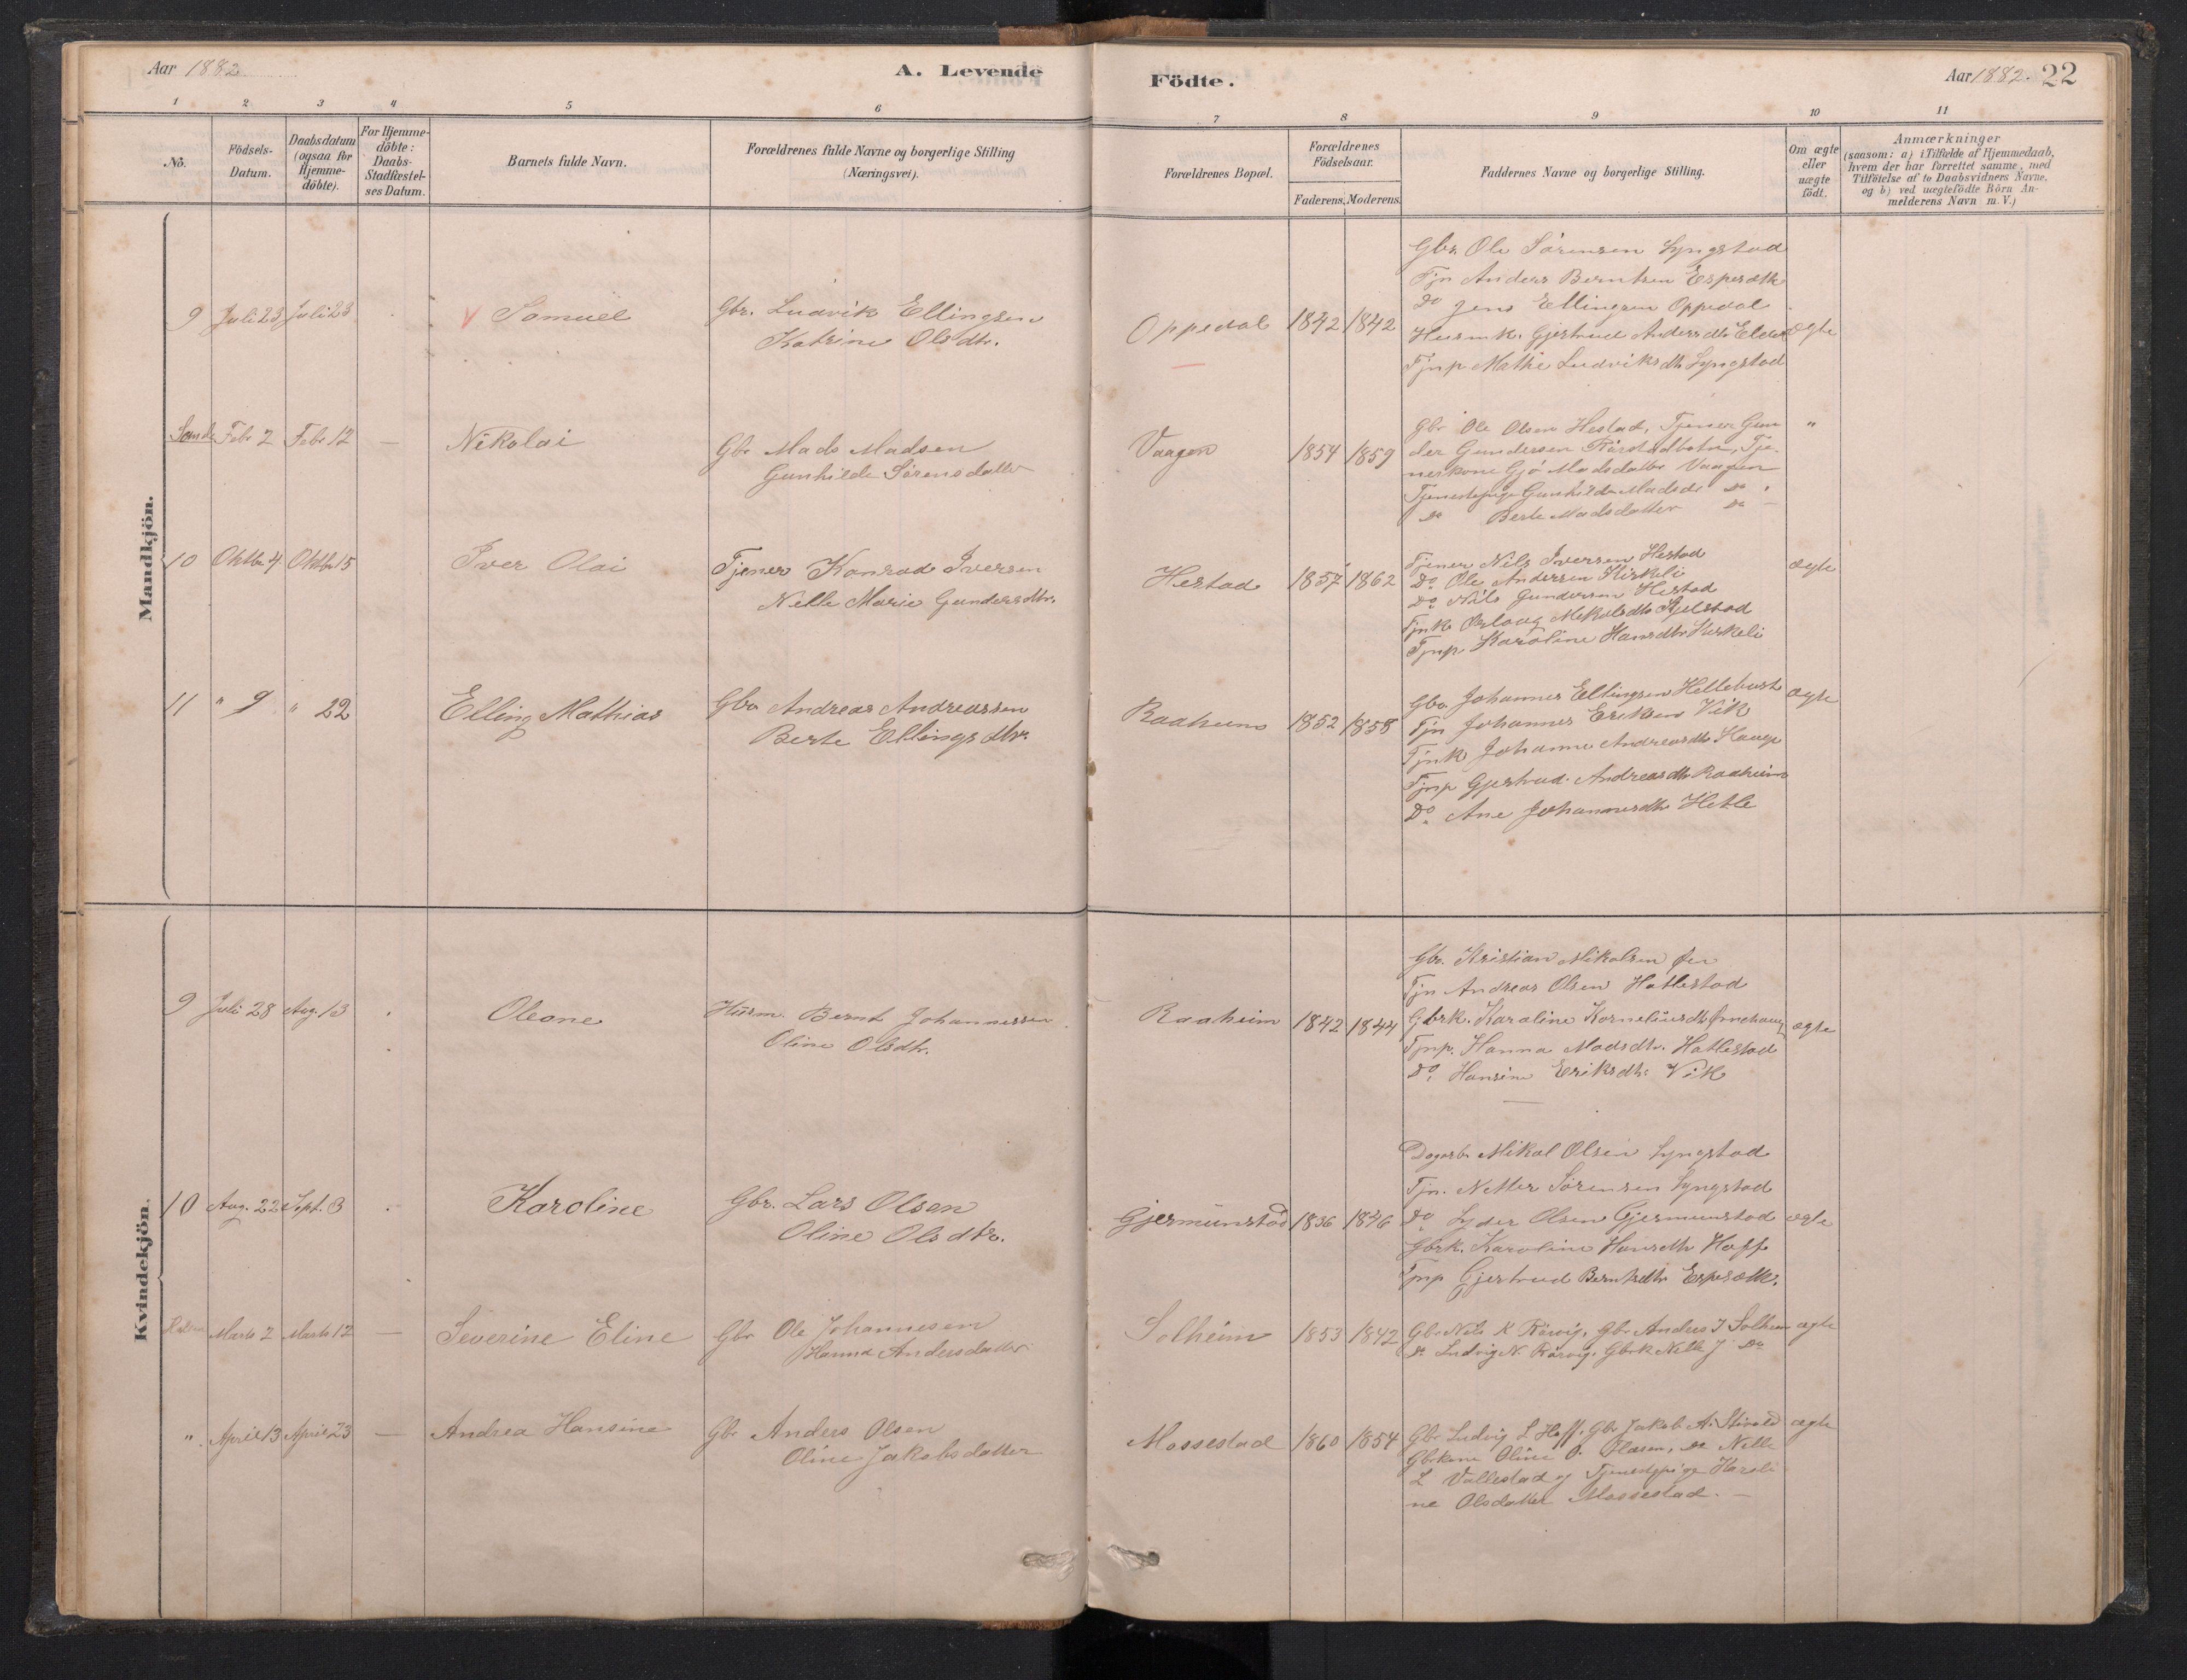 Aar 1882
A. Levende
Födte.
Aar 1882. 22
1 2 3 4 5 6 7 8 9 10 11
No.
Födsels-
Datum.
Daabsdatum
(ogsaa for
Hjemme-
döbte).
For Hjemme-
döbte:
Daabs-
Stadfæstel-
ses Datum.
Barnets fulde Navn.
Forældrenes fulde Navne og borgerlige Stilling
(Næringsvei).
Forældrenes Bopæl.
Forældrenes
Födselsaar.
Faderens. Moderens.
Faddernes Navne og borgerlige Stilling.
Om ægte
eller
uægte
födt.
Anmærkninger
(saasom: a) i Tilfælde af Hjemmedaab,
hvem der har forrettet samme, med
Tilföielse af to Daabsvidners Navne,
og b) ved uægtefödte Börn An-
melderens Navn m. V.)
Mandkjön.
9 Juli 23 Juli 23 Samuel
Gbr. Ludvik Ellingsen
Katrine Olsdtr.
Oppedal 1842 1842
Gbr. Ole Sörensen Lyngstad
Tjn Anders Berntsen Espesætk
Do Jens Ellingsen Oppedal
Husmk. Gjertrud Andersdtr
Tjnp Mathe Ludviksdtr Lyngstad
ægte
Sande Febr 2 Febr 12 — Nikolai
Gbr Mads Madsen
Gunhilde Sörensdatter
Vaagen 1854 1859
Gbr Ole Olsen Hestad, Tjener Gun
der Gundersen Rörstadbotn, Tje-
nerkone Gjö Madsdatter Vaagen
Tjenestepige Gunhilde Madsd Do
Do Berte Madsdatter Do —
"
10 Oktbr 4 Oktbr 15 Iver Olai
Tjener Konrad Iversen
Nelle Marie Gundersdtr.
Hestad 1857 1862
Tjener Nils Iversen Hestad
Do Ole Andersen Kirkeli
Do Nils Gundersen Hestad
Tjnk Mikalsdtr
Tjnp Karoline Hansdtr Kirkeli
ægte
11 " 9 " 22 Elling Mathias
Gbr Andreas Andreassen
Berte Ellingsdtr.
Raaheim 1852 1858
Gbr Johannes Ellingsen Hellebust
Tjn Johannes Eriksen Vik
Tjnk Johanne Andreasdtr Hauge
Tjnp Gjertrud Andreasdtr Raaheim
Do Ane Johannesdtr Hetle
ægte
Kvindekjön.
9 Juli 28 Aug. 13 Oleane
Husm. Bernt Johannessen
Oline Olsdtr.
Raaheim 1842 1844
Gbr. Kristian Mikalsen
Tjn Andreas Olsen Hatlestad
Gbrk. Karoline Korneliusdtr
Tjnp. Hanna Madsdtr. Hatlestad
Do Hansine Eriksdtr. Vik
ægte
10 Aug. 22 Sept. 3 Karoline
Gbr. Lars Olsen
Oline Olsdtr.
Gjermunstad 1836 1846
Dagarb. Mikal Olsen Lyngstad
Tjn. Netter Sörensen Lyngstad
Do Lyder Olsen Gjermunstad
Gbrk. Karoline Hansdtr Hoff
Tjnp Gjertrud Berntsdtr
ægte
Marts 2 Marts 12 — Severine Eline
Gbr Ole Johannesen
Hanna Andersdatter
Solheim 1853 1842
Gbr Nils K Rörvig, Gbr Anders J Solheim
Do Ludvig N. Rörvig. Gbrk Nelle J Do
ægte
" April 13 April 23 — Andrea Hansine
Gbr Anders Olsen
Oline Jakobsdatter
Mossestad 1860 1854
Gbr Ludvig L Hoff, Gbr Jakob A.
Gbrkone Oline O. Do Nelle
L Vallestad og Tjenestepige Karoli
ne Olsdatter Mossestad. —
ægte